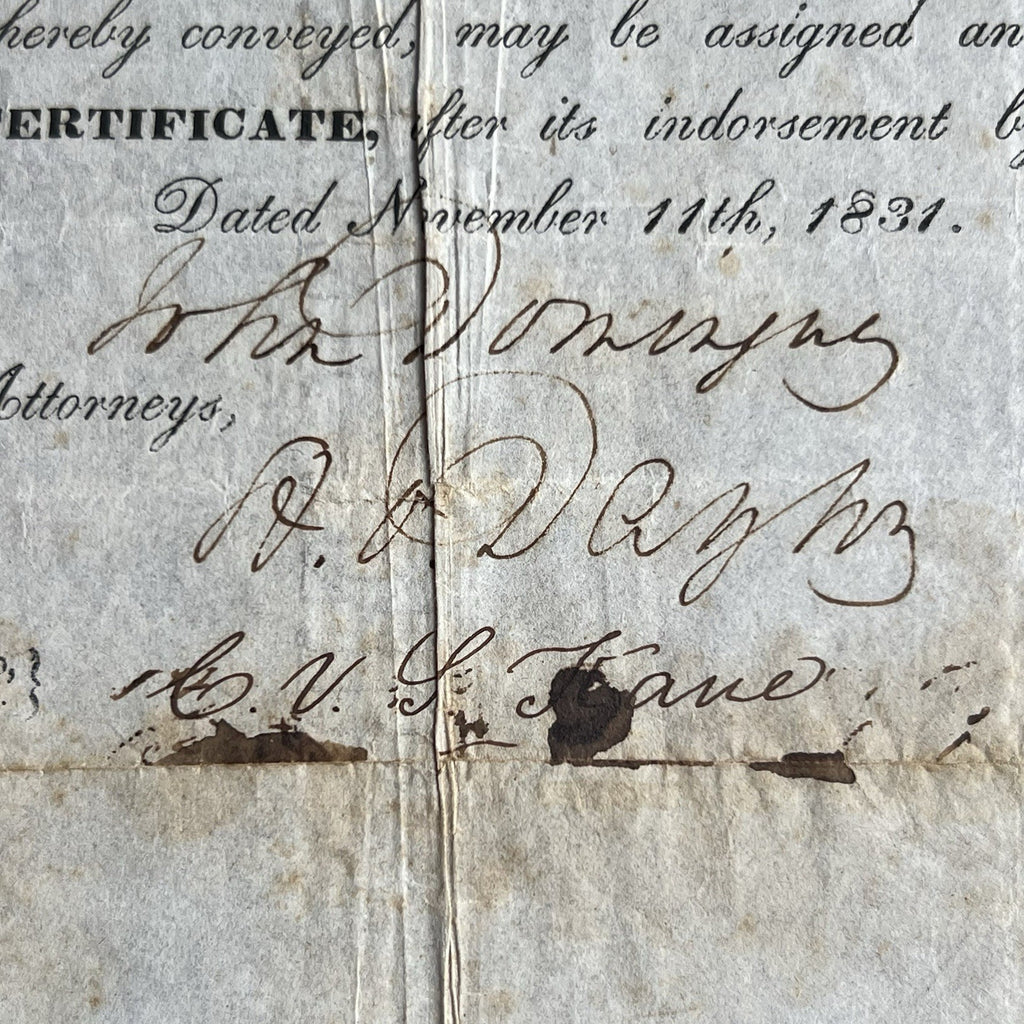 hereby conveyed, may be assigned an
ERTIFICATE, after its indorsement by
Dated November 11th, 1831.
John Dominguez
Attorneys,
C. V. S. Kane